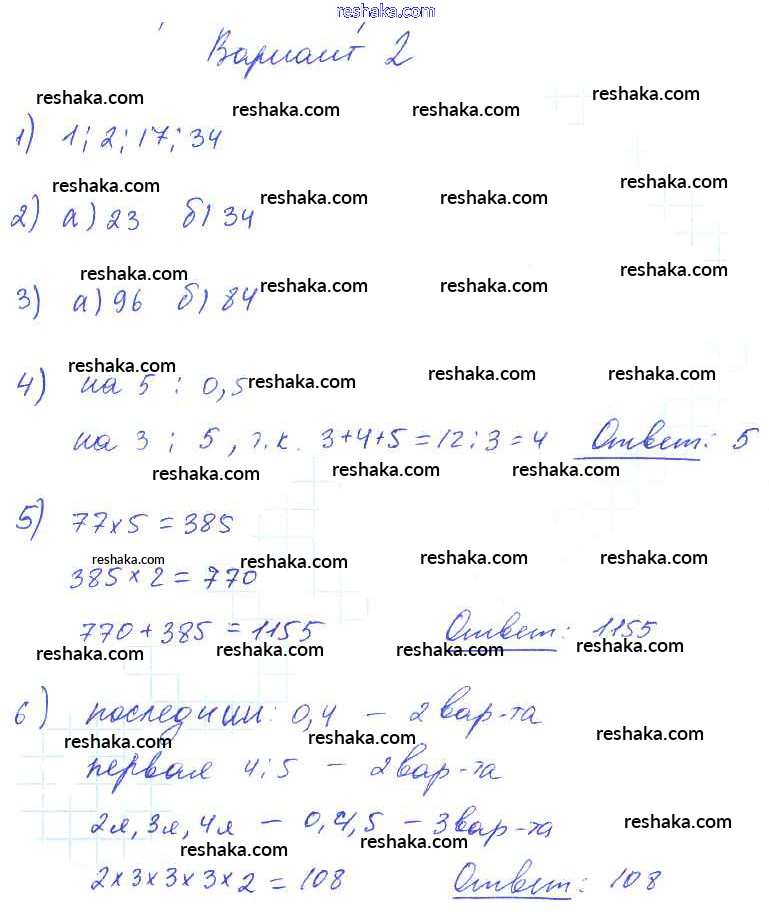 reshaka.com
Вариант 2
reshaka.com reshaka.com reshaka.com reshaka.com
1) 1; 2; 17; 34
reshaka.com reshaka.com reshaka.com reshaka.com
2) а) 23 б) 34
reshaka.com reshaka.com reshaka.com reshaka.com
3) а) 96 б) 84
reshaka.com reshaka.com reshaka.com reshaka.com
4) на 5 : 0,5
на 3 : 5, т.к. 3+4+5=12:3=4 Ответ: 5
reshaka.com reshaka.com reshaka.com
5) 77×5=385
reshaka.com reshaka.com reshaka.com reshaka.com
385×2=770
770+385=1155 Ответ: 1155
reshaka.com reshaka.com reshaka.com reshaka.com
6) последнии: 0,4 – 2 вар-та
reshaka.com reshaka.com reshaka.com
первая 4; 5 – 2 вар-та
2я, 3я, 4я – 0,4,5 – 3 вар-та
reshaka.com reshaka.com reshaka.com
2×3×3×3×2=108 Ответ: 108